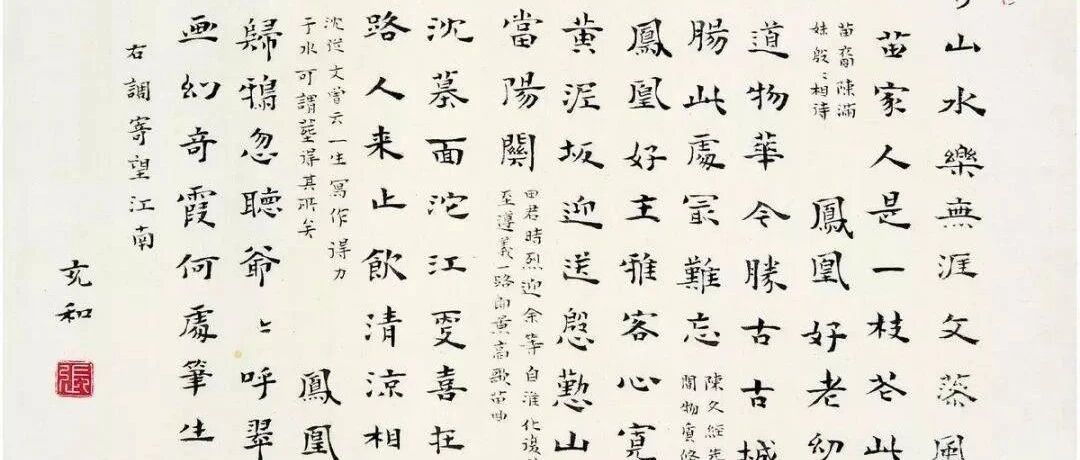 山水樂無涯文藻風
苗家人是一枝花此
苗裔陳滿
妹殷〻相待
鳳凰好老幼
道物華今勝古古城
腸此處最難忘
陳文經先
聞物質條
鳳凰好主雅客心寬
黃泥坂迎送慇懃山
當陽關
田君時烈迎余等自淮化後
至遵義一路高歌苗曲
沈墓面沱江更喜在
路人来止飲清涼相
沈從文曾云一生寫作得力
于水可謂葬得其所矣
鳳凰
歸鴉忽聽爺〻呼翠
画幻奇霞何處筆生
右調寄望江南
充和
張